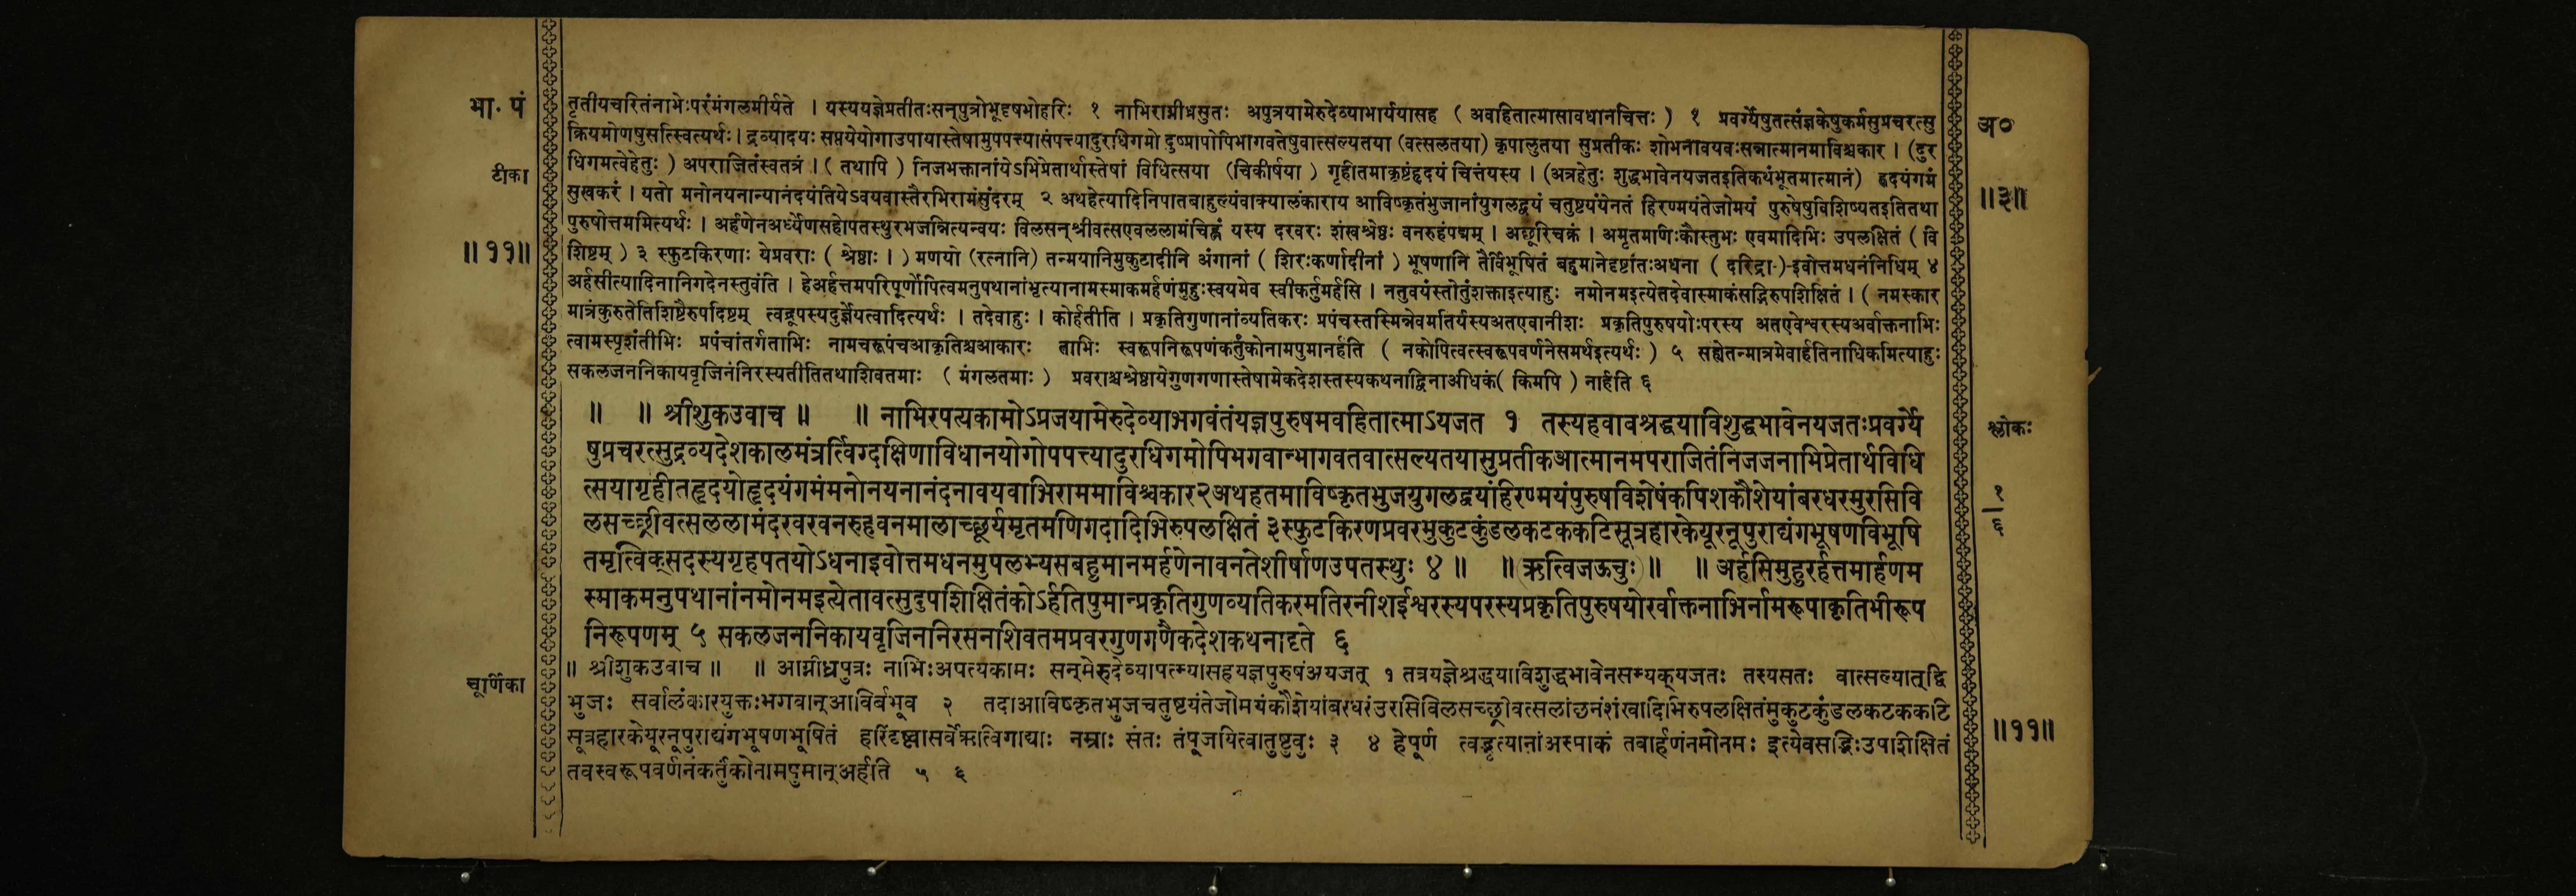 भा. पं
तृतीयचरितंनाभेःपरंमंगलमीर्यते । यस्ययज्ञेप्रतीतःसन्पुत्रोभूदृषभोहरिः १ नाभिराग्नीध्रसुतः अपुत्रयामेरुदेव्याभार्ययासह ( अवहितात्मासावधानचित्तः ) १ प्रवर्ग्येषुतत्संज्ञकेषुकर्मसुप्रचरत्सु
अ०
क्रियमोणषुसत्स्वित्यर्थः । द्रव्यादयः सप्तयेयोगाउपायास्तेषामुपपत्त्यासंपत्त्यादुरधिगमो दुष्प्रापोपिभागवतेषुवात्सल्यतया (वत्सलतया) कृपालुतया सुप्रतीकः शोभनावयवःसन्नात्मानमाविश्चकार । (दुर
टीका
धिगमत्वेहेतुः ) अपराजितंस्वतत्रं । ( तथापि ) निजभक्तानांयेऽभिप्रेतार्थास्तेषां विधित्सया (चिकीर्षया ) गृहीतमाकृष्टंहृदयं चित्तंयस्य । (अत्रहेतुः शुद्धभावेनयजतइतिकथंभूतमात्मानं) हृदयंगमं
सुखकरं । यतो मनोनयनान्यानंदयंतियेऽवयवास्तैरभिरामंसुंदरम् २ अथहेत्यादिनिपातबाहुल्यंवाक्यालंकाराय आविष्कृतंभुजानांयुगलद्वयं चतुष्टयंयेनतं हिरण्मयंतेजोमयं पुरुषेषुविशिष्यतइतितथा
॥३॥
पुरुषोत्तममित्यर्थः । अर्हणेनअर्घ्येणसहोपतस्थुरभजन्नित्यन्वयः विलसन्श्रीवत्सएवललामंचिह्नं यस्य दरवरः शंखश्रेष्ठः वनरुहंपद्मम् । अच्छूरिचक्रं । अमृतमाणिःकौस्तुभः एवमादिभिः उपलक्षितं ( वि
॥११॥
शिष्टम् ) ३ स्फुटकिरणाः येप्रवराः ( श्रेष्ठाः । ) मणयो (रत्नानि) तन्मयानिमुकुटादीनि अंगानां ( शिरःकर्णादीनां ) भूषणानि तैर्विभूषितं बहुमानेदृष्टांतःअधना ( दरिद्रा-)-इवोत्तमधनंनिधिम् ४
अर्हसीत्यादिनानिगदेनस्तुवंति । हेअर्हत्तमपरिपूर्णोपित्वमनुपथानांभृत्यानामस्माकमर्हणंमुहुःस्वयमेव स्वीकर्तुमर्हसि । नतुवयंस्तोतुंशक्ताइत्याहुः नमोनमइत्येतदेवास्माकंसद्भिरुपशिक्षितं । ( नमस्कार
मात्रंकुरुतेतिशिष्टैरुपदिष्टम् त्वद्रूपस्यदुर्ज्ञेयत्वादित्यर्थः । तदेवाहुः । कोर्हतीति । प्रकृतिगुणानांव्यतिकरः प्रपंचस्तस्मिन्नेवमतिर्यस्यअतएवानीशः प्रकृतिपुरुषयोःपरस्य अतएवेश्वरस्यअर्वाक्तनाभिः
त्वामस्पृशंतीभिः प्रपंचांतर्गताभिः नामचरूपंचआकृतिश्चआकारः ताभिः स्वरूपनिरूपणंकर्तुंकोनामपुमानर्हति ( नकोपित्वत्स्वरूपवर्णनेसमर्थइत्यर्थः ) ५ सह्येतन्मात्रमेवार्हतिनाधिकमित्याहुः
सकलजननिकायवृजिनंनिरस्यतीतितथाशिवतमाः ( मंगलतमाः ) प्रवराश्चश्रेष्ठायेगुणगणास्तेषामेकदेशस्तस्यकथनाद्विनाअधिकं( किमपि ) नार्हति ६
॥ ॥ श्रीशुकउवाच ॥ ॥ नाभिरपत्यकामोऽप्रजयामेरुदेव्याभगवंतंयज्ञपुरुषमवहितात्माऽयजत १ तस्यहवावश्रद्धयाविशुद्धभावेनयजतःप्रवर्ग्ये
श्लोकः
षुप्रचरत्सुद्रव्यदेशकालमंत्रर्त्विग्दक्षिणाविधानयोगोपपत्त्यादुरधिगमोपिभगवान्भागवतवात्सल्यतयासुप्रतीकआत्मानमपराजितंनिजजनाभिप्रेतार्थविधि
त्सयागृहीतहृदयोहृदयंगमंमनोनयनानंदनावयवाभिराममाविश्चकार२अथहतमाविष्कृतभुजयुगलद्वयांहिरण्मयंपुरुषविशेषंकपिशकौशेयांबरधरमुरसिवि
१
६
लसच्छ्रीवत्सललामंदरवरवनरुहवनमालाच्छूर्यमृतमणिगदादिभिरुपलक्षितं ३स्फुटकिरणप्रवरमुकुटकुंडलकटककटिसूत्रहारकेयूरनूपुराद्यंगभूषणविभूषि
तमृत्विक्सदस्यगृहपतयोऽधनाइवोत्तमधनमुपलभ्यसबहुमानमर्हणेनावनतेशीर्षाणउपतस्थुः ४ ॥ ॥(ऋत्विजऊचुः)॥ ॥ अर्हसिमुहुरर्हत्तमार्हणम
स्माकमनुपथानांनमोनमइत्येतावत्सुदुपशिक्षितंकोऽर्हतिपुमान्प्रकृतिगुणव्यतिकरमतिरनीशईश्वरस्यपरस्यप्रकृतिपुरुषयोरर्वाक्तनाभिर्नामरूपाकृतिभीरूप
निरूपणम् ५ सकलजननिकायवृजिननिरसनाशिवतमप्रवरगुणगणैकदेशकथनादृते ६
॥ श्रीशुकउवाच ॥ ॥ आग्नीध्रपुत्रः नाभिःअपत्यकामः सन्मेरुदेव्यापत्न्यासहयज्ञपुरुषंअयजत् १ तत्रयज्ञेश्रद्धयाविशुद्धभावेनसम्यक्यजतः तस्यसतः वात्सल्यात्द्वि
चूर्णिका
भुजः सर्वालंकारयुक्तःभगवान्आविर्बभूव २ तदाआविष्कृतभुजचतुष्टयंतेजोमयंकौशेयांबरधरंउरसिविलसच्छ्रीवत्सलांछनंशंखादिभिरुपलक्षितंमुकुटकुंडलकटककटि
सूत्रहारकेयूरनूपुराद्यंगभूषणभूषितं हरिंदृष्ट्वासर्वेऋत्विगाद्याः नम्राः संतः तंपूजयित्वातुष्टुवुः ३ ४ हेपूर्ण त्वद्भृत्यानांअस्माकं तवार्हणंनमोनमः इत्येवसद्भिःउपाशिक्षितं
॥११॥
तवस्वरूपवर्णनंकर्तुंकोनामपुमान्अर्हति ५ ६